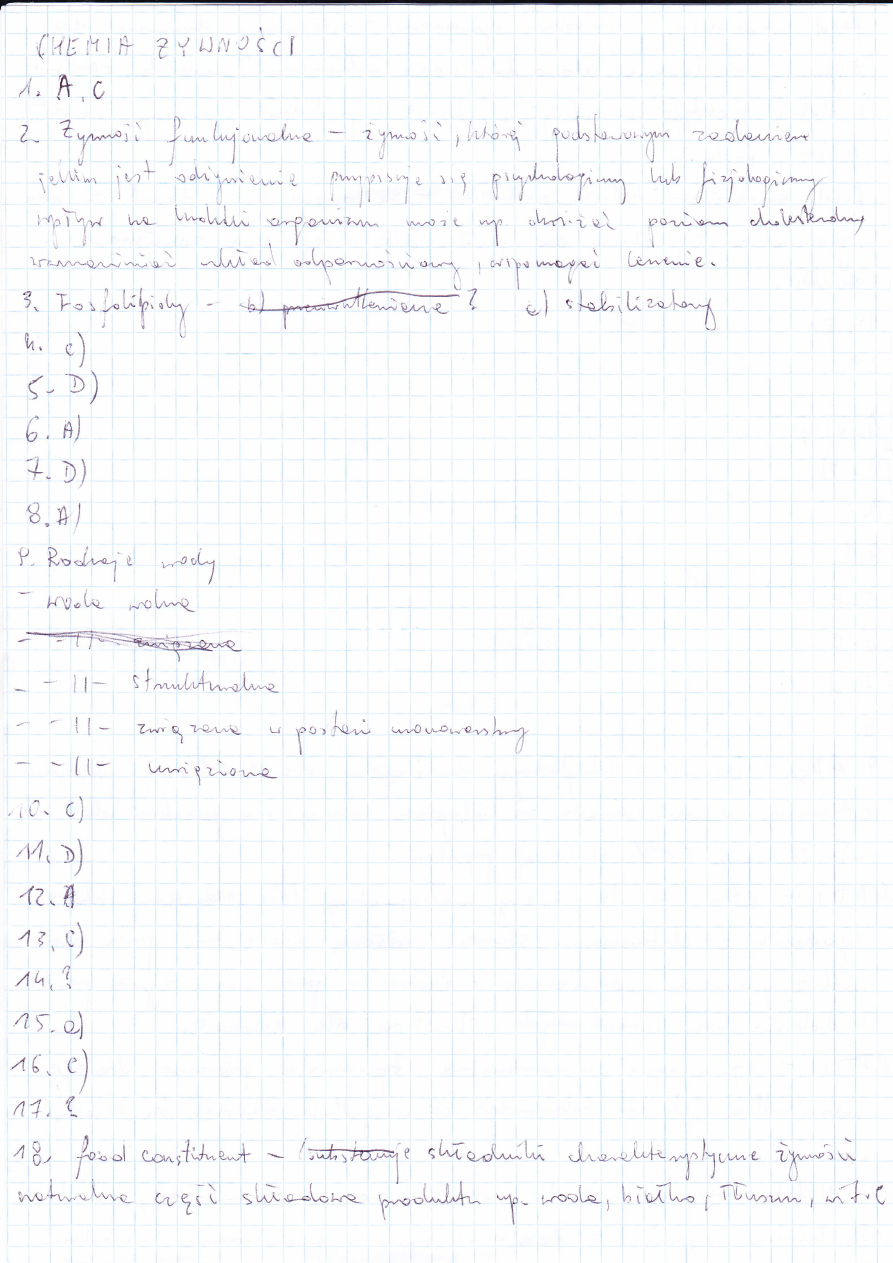 CHEMIA ŻYWNOŚCI
1. A, C
2. Żywność funkcjonalna – żywność, której podstawowym zadaniem
jakim jest odżywienie przypisuje się psychologiczny lub fizjologiczny
wpływ na ludzki organizm może np. obniżać poziom cholesterolu,
wzmacniać układ odpornościowy, wspomagać leczenie.
3. Fosfolipidy – b) ? c) stabilizatory
4. c)
5. D)
6. A)
7. D)
8. A)
9. Rodzaje wody
- woda wolna
- -||- związana
- -||- strukturalna
- -||- związana w postaci monowarstwy
- -||- uwięziona
10. C)
11. D)
12. A
13. C)
14. ?
15. a)
16. C)
17. ?
18. food constituent – składniki charakterystyczne żywności
naturalna część składowa produktu np. woda, białko, tłuszcz, wit. C